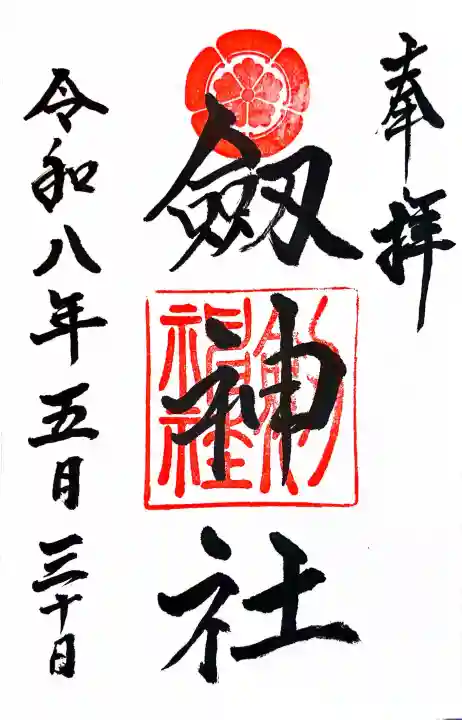 奉拝
劔神社
劔神社
令和八年五月三十日